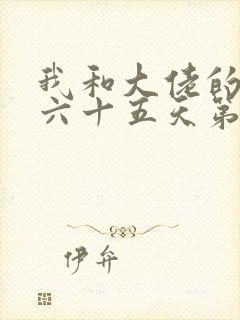 我和大佬的
六十五天第
伊弁